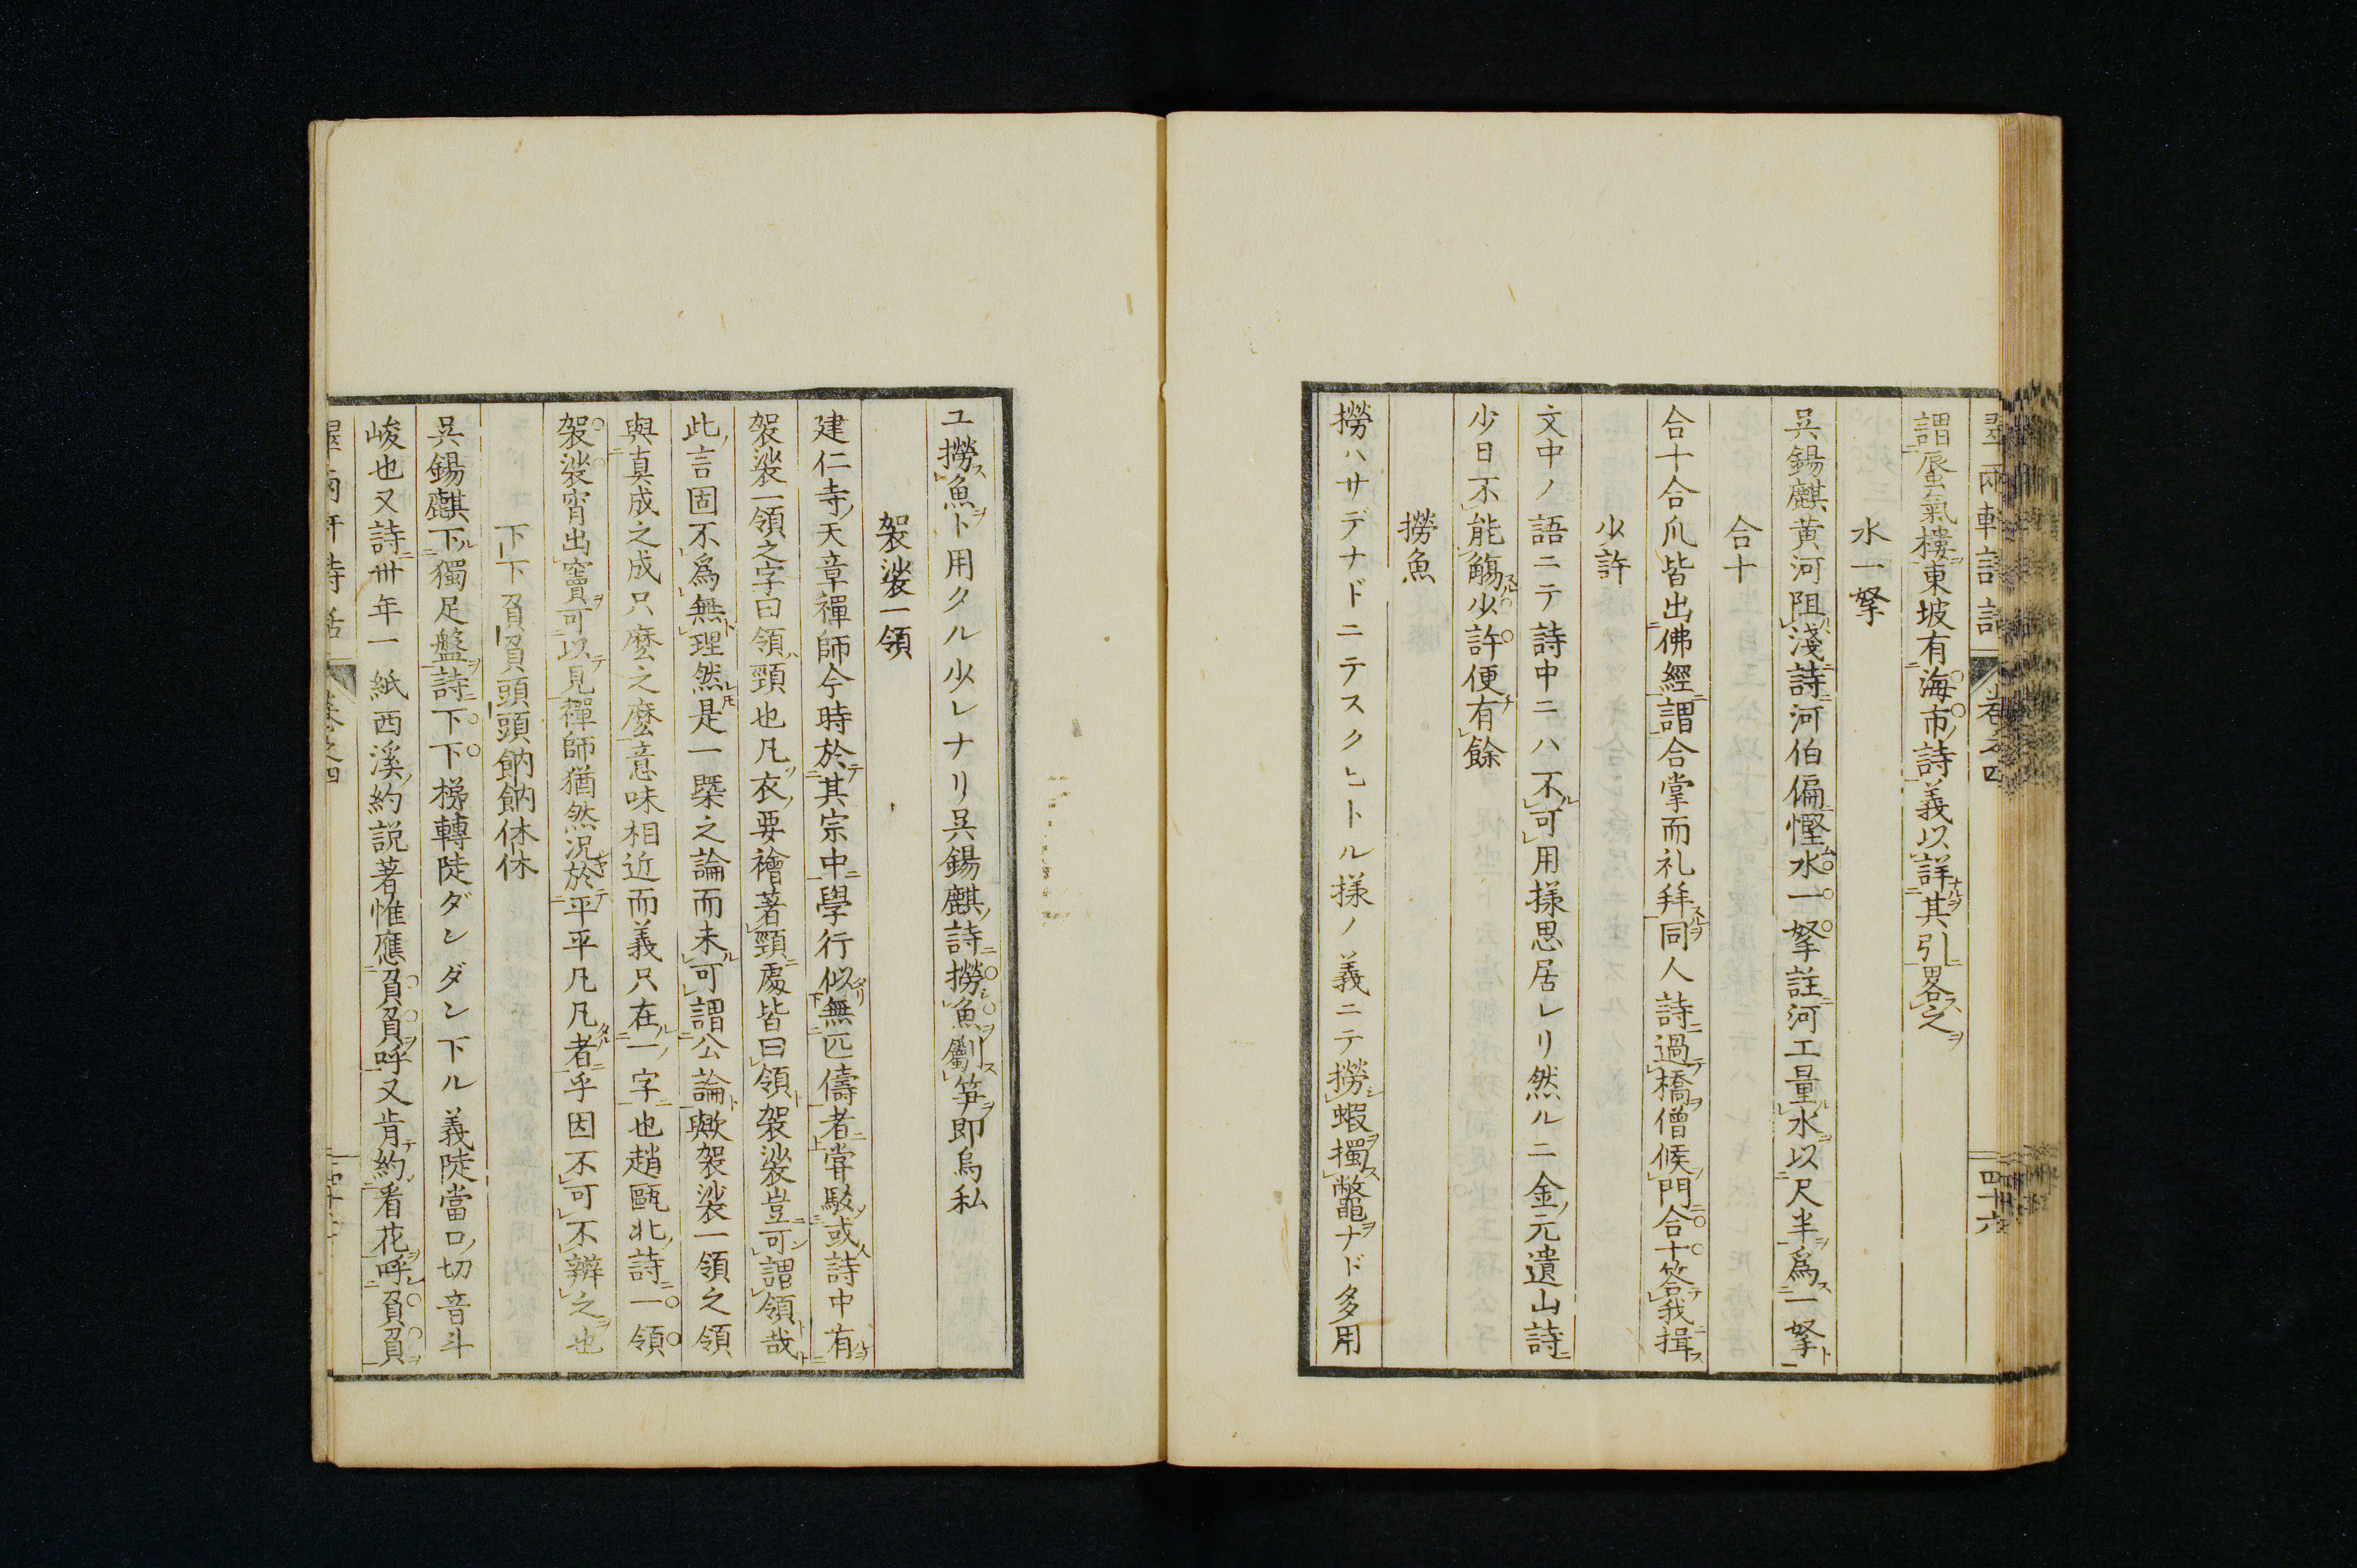 謂蜃氣樓東坡有海市詩義以詳其引畧之
水一拏
吳錫麒黄河阻淺詩河伯偏慳水一拏註河工量水以尺半爲一拏
合十
合十合爪皆出佛經謂合掌而礼拜同人詩過橋僧候門合十答我揖
少許
文中ノ語ニテ詩中ニハ不可用樣思居レリ然ルニ金元遺山詩
少日不能觴少許便有餘
撈魚
撈ハサデナドニテスクヒトル樣ノ義ニテ撈蝦擉鼈ナド多用
卷之四
四十六
ユ撈魚ト用タル少レナリ吳錫麒詩撈魚斸笋即烏私
袈裟一領
建仁寺天章禪師今時於其宗中學行似無匹儔者甞駁或詩中有
袈裟一領之字曰領頸也凡衣要襘著頸處皆曰領袈裟豈可謂領哉
此言固不爲無理然是一槩之論而未可謂公論歟袈裟一領之領
與真成之成只麼之麼意味相近而義只在一字也趙甌北詩一領
袈裟宵出竇可以見禪師猶然況於平平凡凡者乎因不可不辨之也
下下負負頭頭餉餉休休
吳錫麒下獨足盤詩下下梯轉陡ダンダン下ル義陡當口切音斗
峻也又詩卅年一紙西溪約説著惟應負負呼又肯約看花呼負負